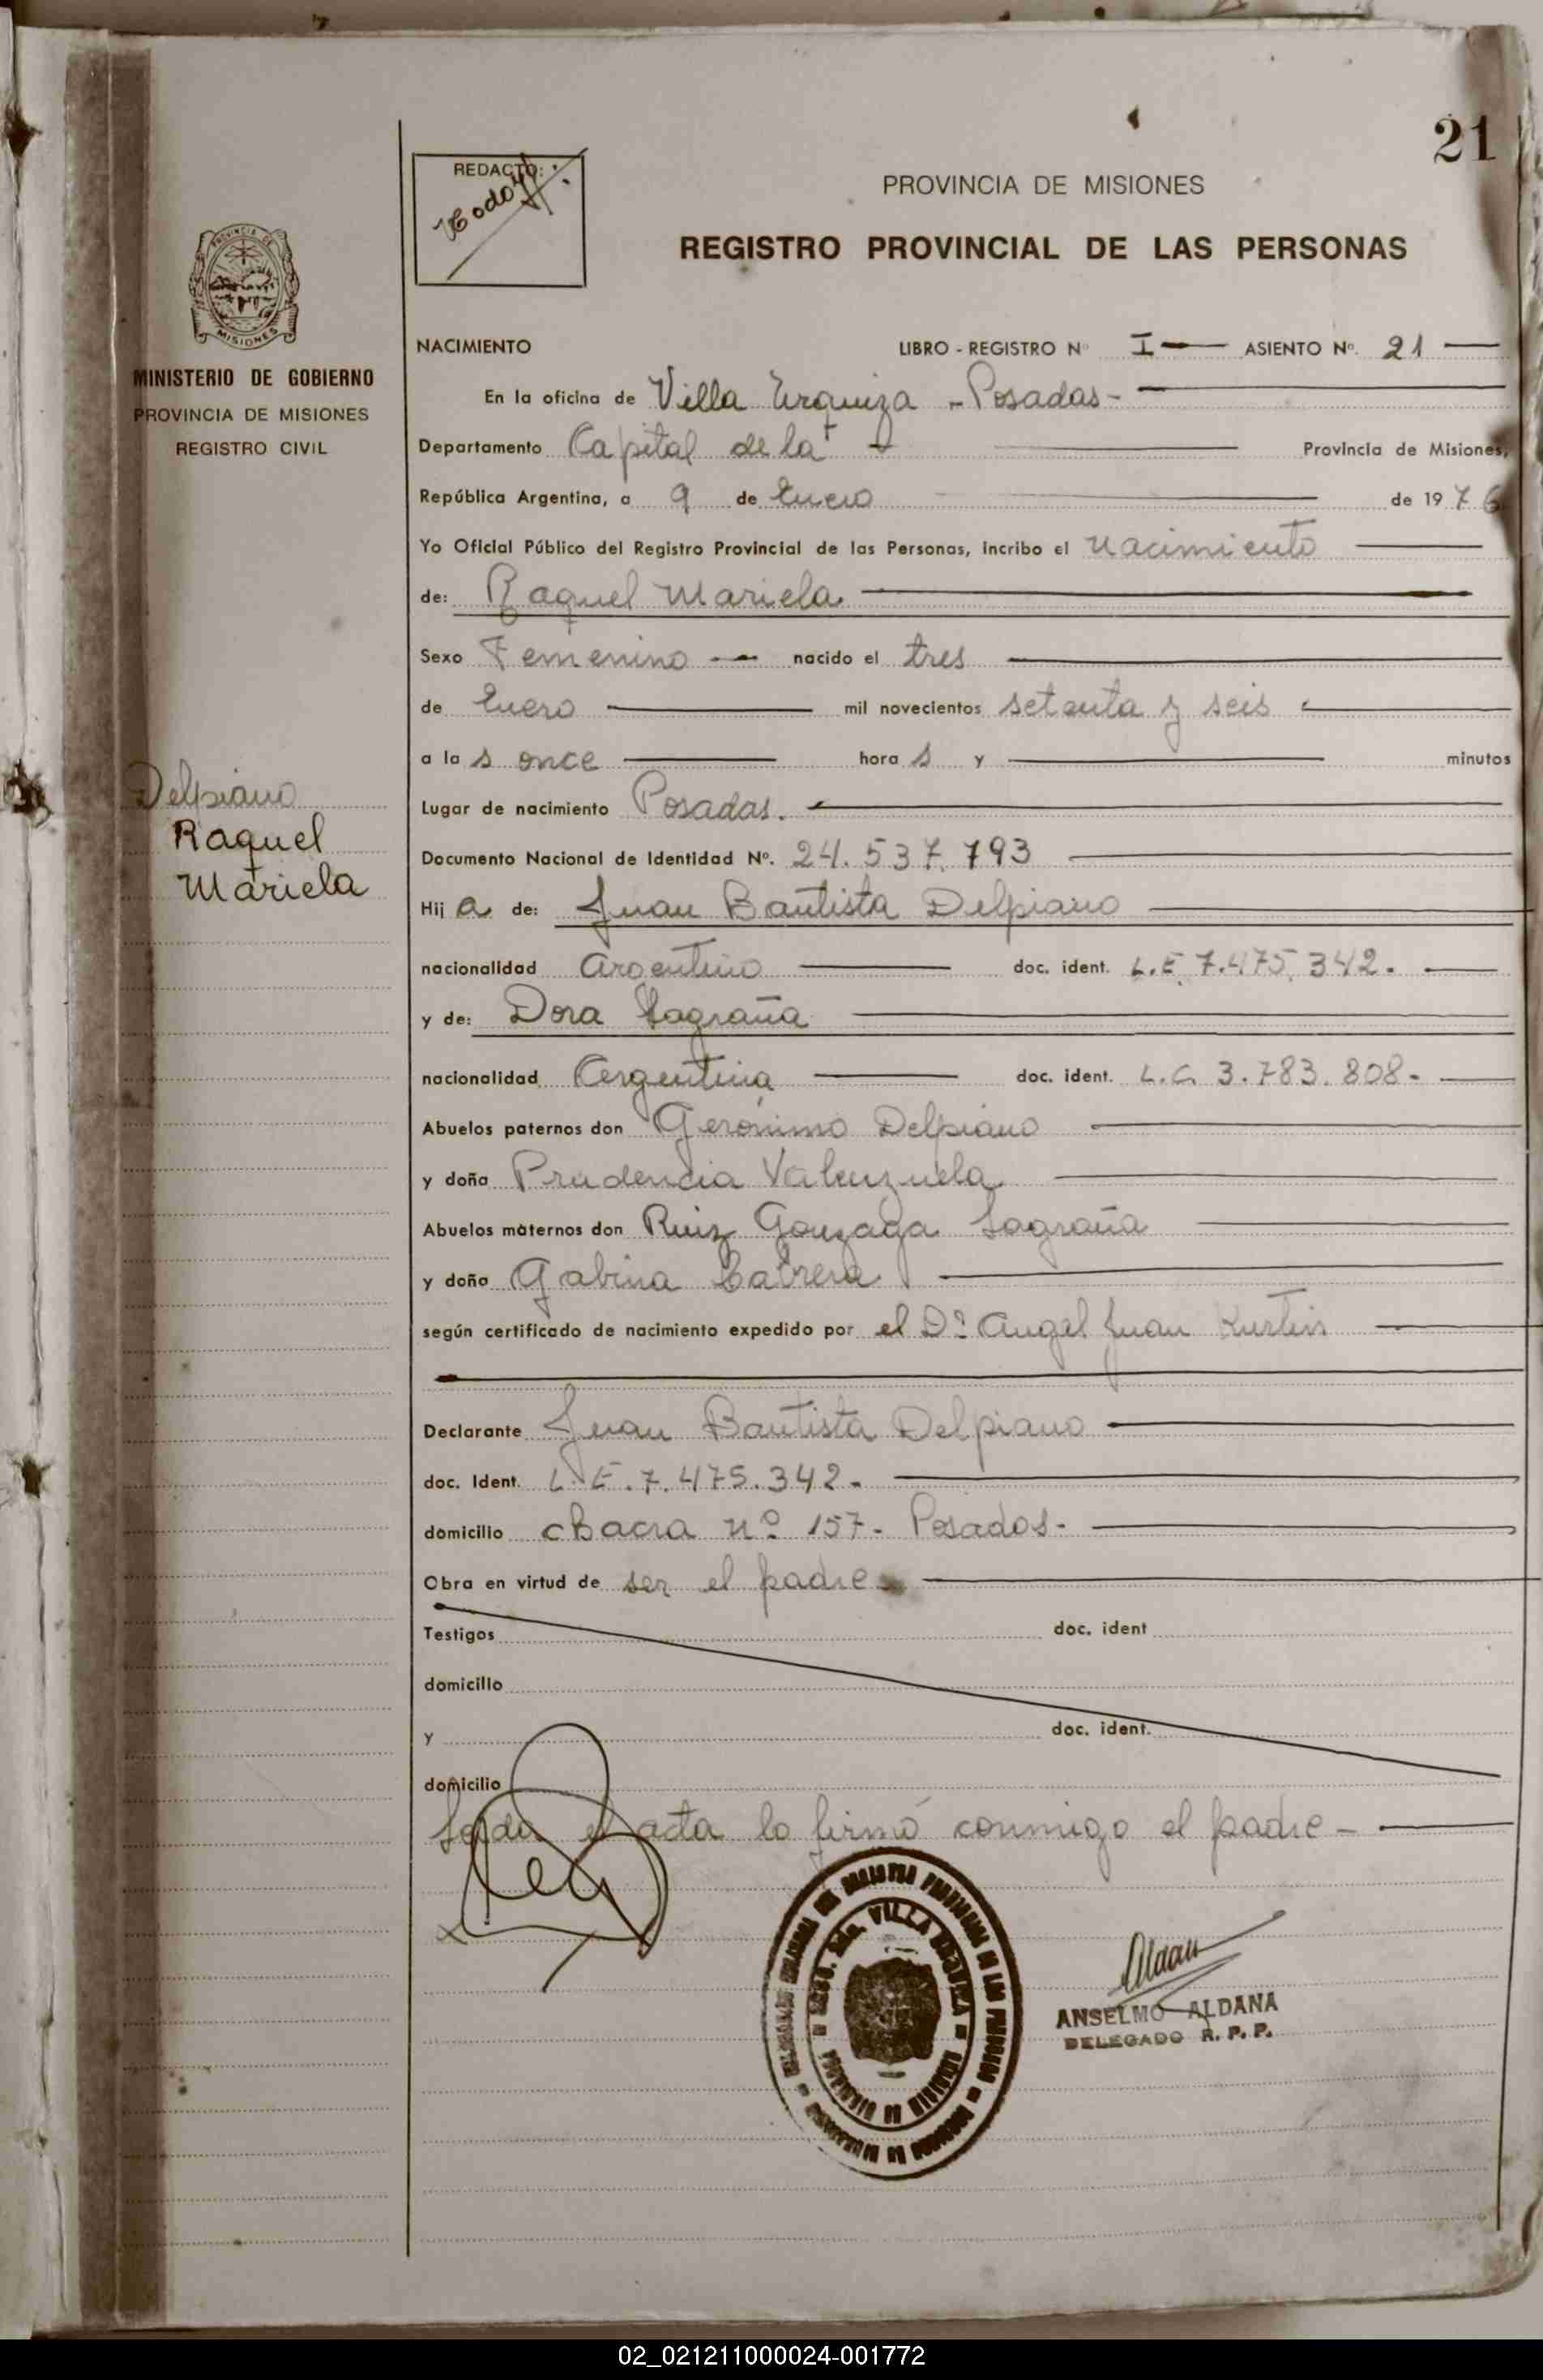 21
REDACTO:
PROVINCIA DE MISIONES
REGISTRO PROVINCIAL DE LAS PERSONAS
PROVINCIA DE
MISIONES
MINISTERIO DE GOBIERNO
PROVINCIA DE MISIONES
REGISTRO CIVIL
NACIMIENTO LIBRO - REGISTRO Nº I ASIENTO Nº. 21
En la oficina de Villa Urquiza - Posadas -
Departamento Capital de la Provincia de Misiones,
República Argentina, a 9 de Enero de 1976
Yo Oficial Público del Registro Provincial de las Personas, incribo el nacimiento
de: Raquel Mariela
Sexo Femenino nacido el tres
de Enero mil novecientos setenta y seis
a las once horas y minutos
Delpiano
Raquel
Mariela
Lugar de nacimiento Posadas.
Documento Nacional de Identidad Nº. 24.537.793
Hija de: Juan Bautista Delpiano
nacionalidad Argentino doc. ident. L.E. 7.475.342.
y de: Dora Sagraña
nacionalidad Argentina doc. ident. L.C. 3.783.808-
Abuelos paternos don Gerónimo Delpiano
y doña Prudencia Valenzuela
Abuelos maternos don Ruiz Gonzaga Sagraña
y doña Gabina Cabrera
según certificado de nacimiento expedido por el Dr Angel Juan
Declarante Juan Bautista Delpiano
doc. Ident. L.E. 7.475.342-
domicilio chacra nº 157- Posadas-
Obra en virtud de ser el padre
Testigos doc. ident
domicilio
y doc. ident.
domicilio
Leída el acta lo firmó conmigo el padre -
VILLA URQUIZA
ANSELMO ALDANA
DELEGADO R. P. P.
02_021211000024-001772